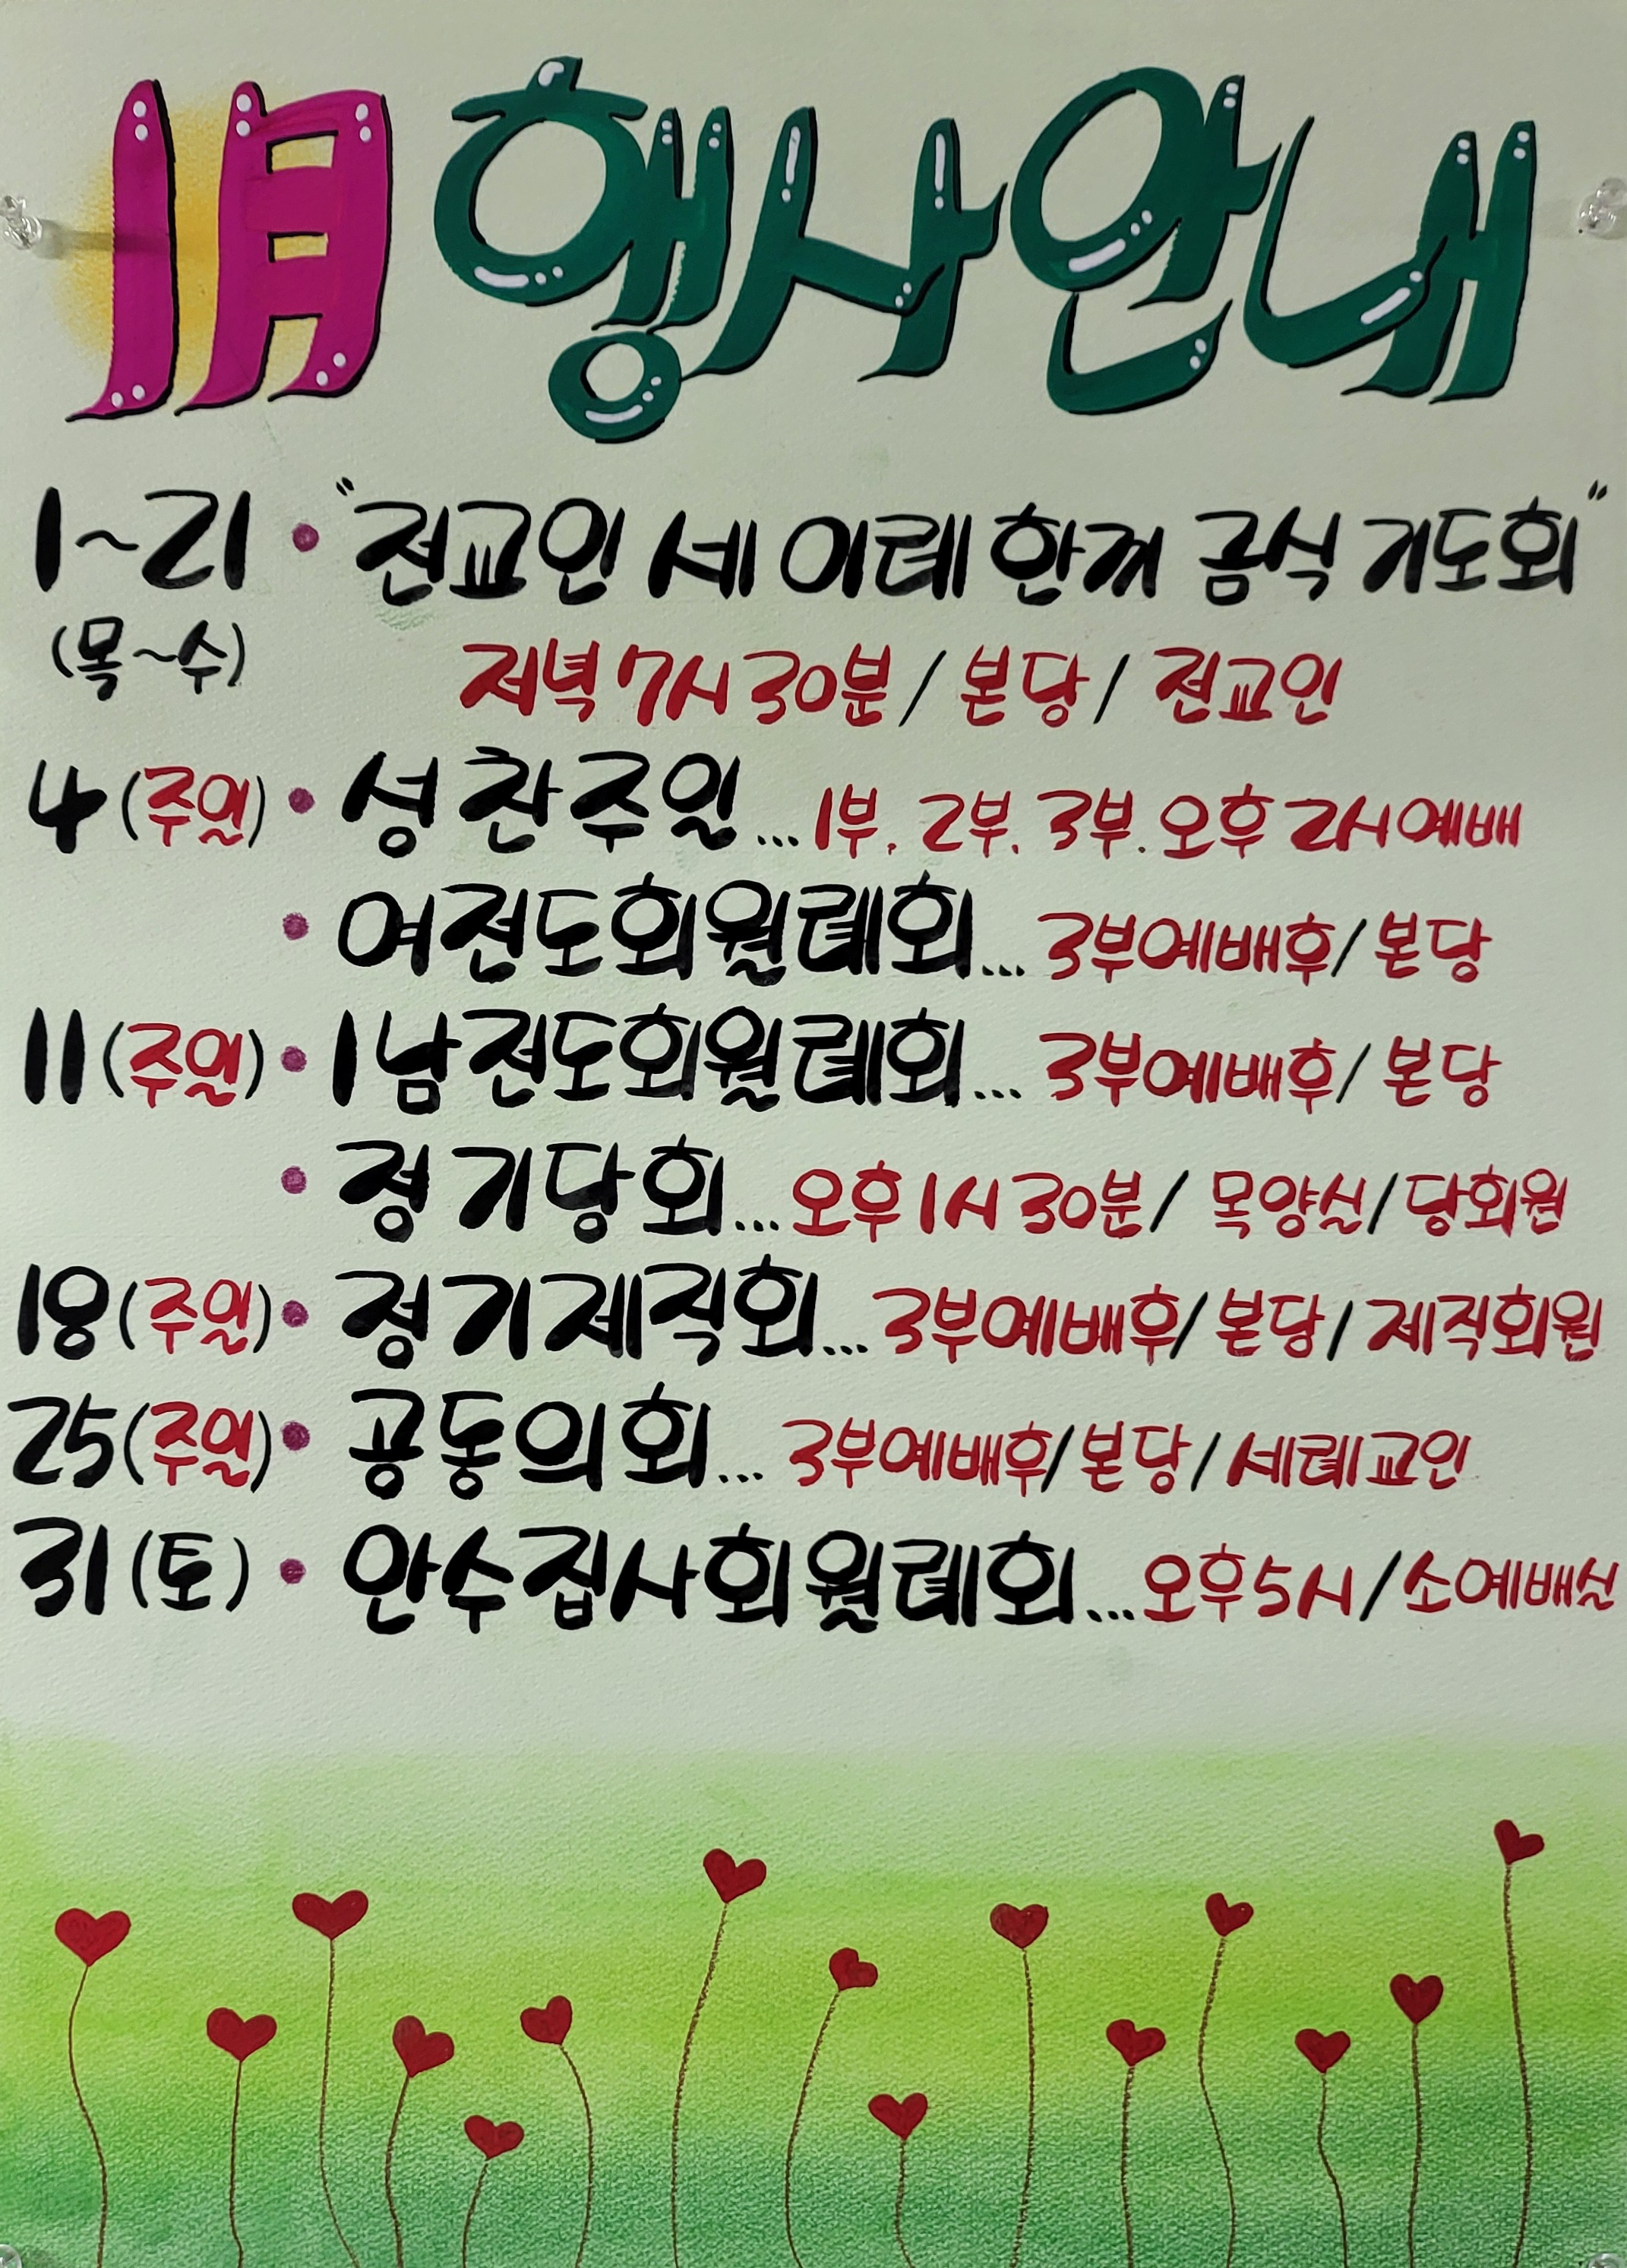 1月 행사안내
1~21 • "전교인 세 이레 한끼 금식 기도회"
(목~수) 저녁 7시 30분 / 본당 / 전교인
4 (주일) • 성찬주일... 1부. 2부. 3부. 오후 2시예배
• 여전도회월례회... 3부예배후 / 본당
11 (주일) • 1남전도회월례회... 3부예배후 / 본당
• 정기당회... 오후 1시 30분 / 목양실 / 당회원
18 (주일) • 정기제직회... 3부예배후 / 본당 / 제직회원
25 (주일) • 공동의회... 3부예배후 / 본당 / 세례교인
31 (토) • 안수집사회월례회... 오후 5시 / 소예배실